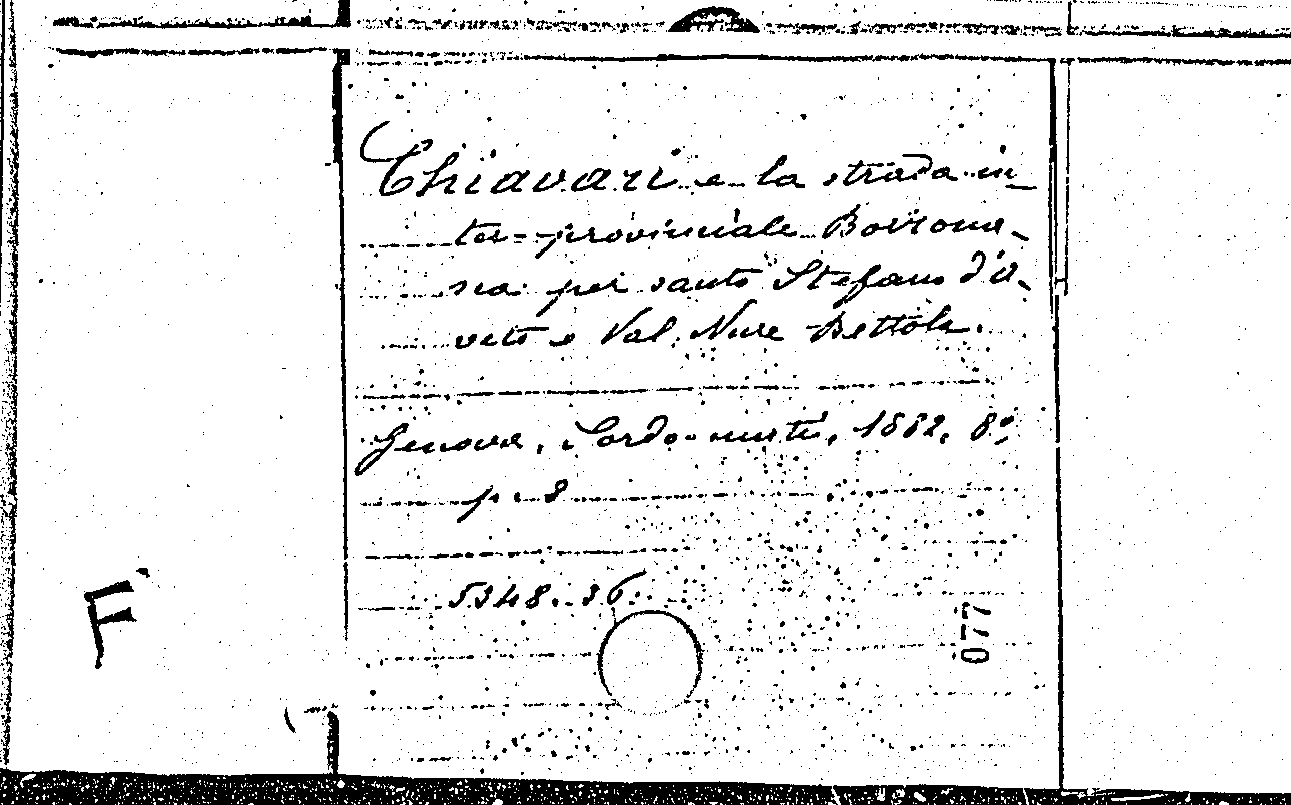 Chiavari e la strada in-
ter-provinciale Borzona-
sca per santo Stefano d'A-
veto e Val Nure Bettola.
Genova, Sordo-muti, 1882. 8°,
p. 8
5348.36.
077
F